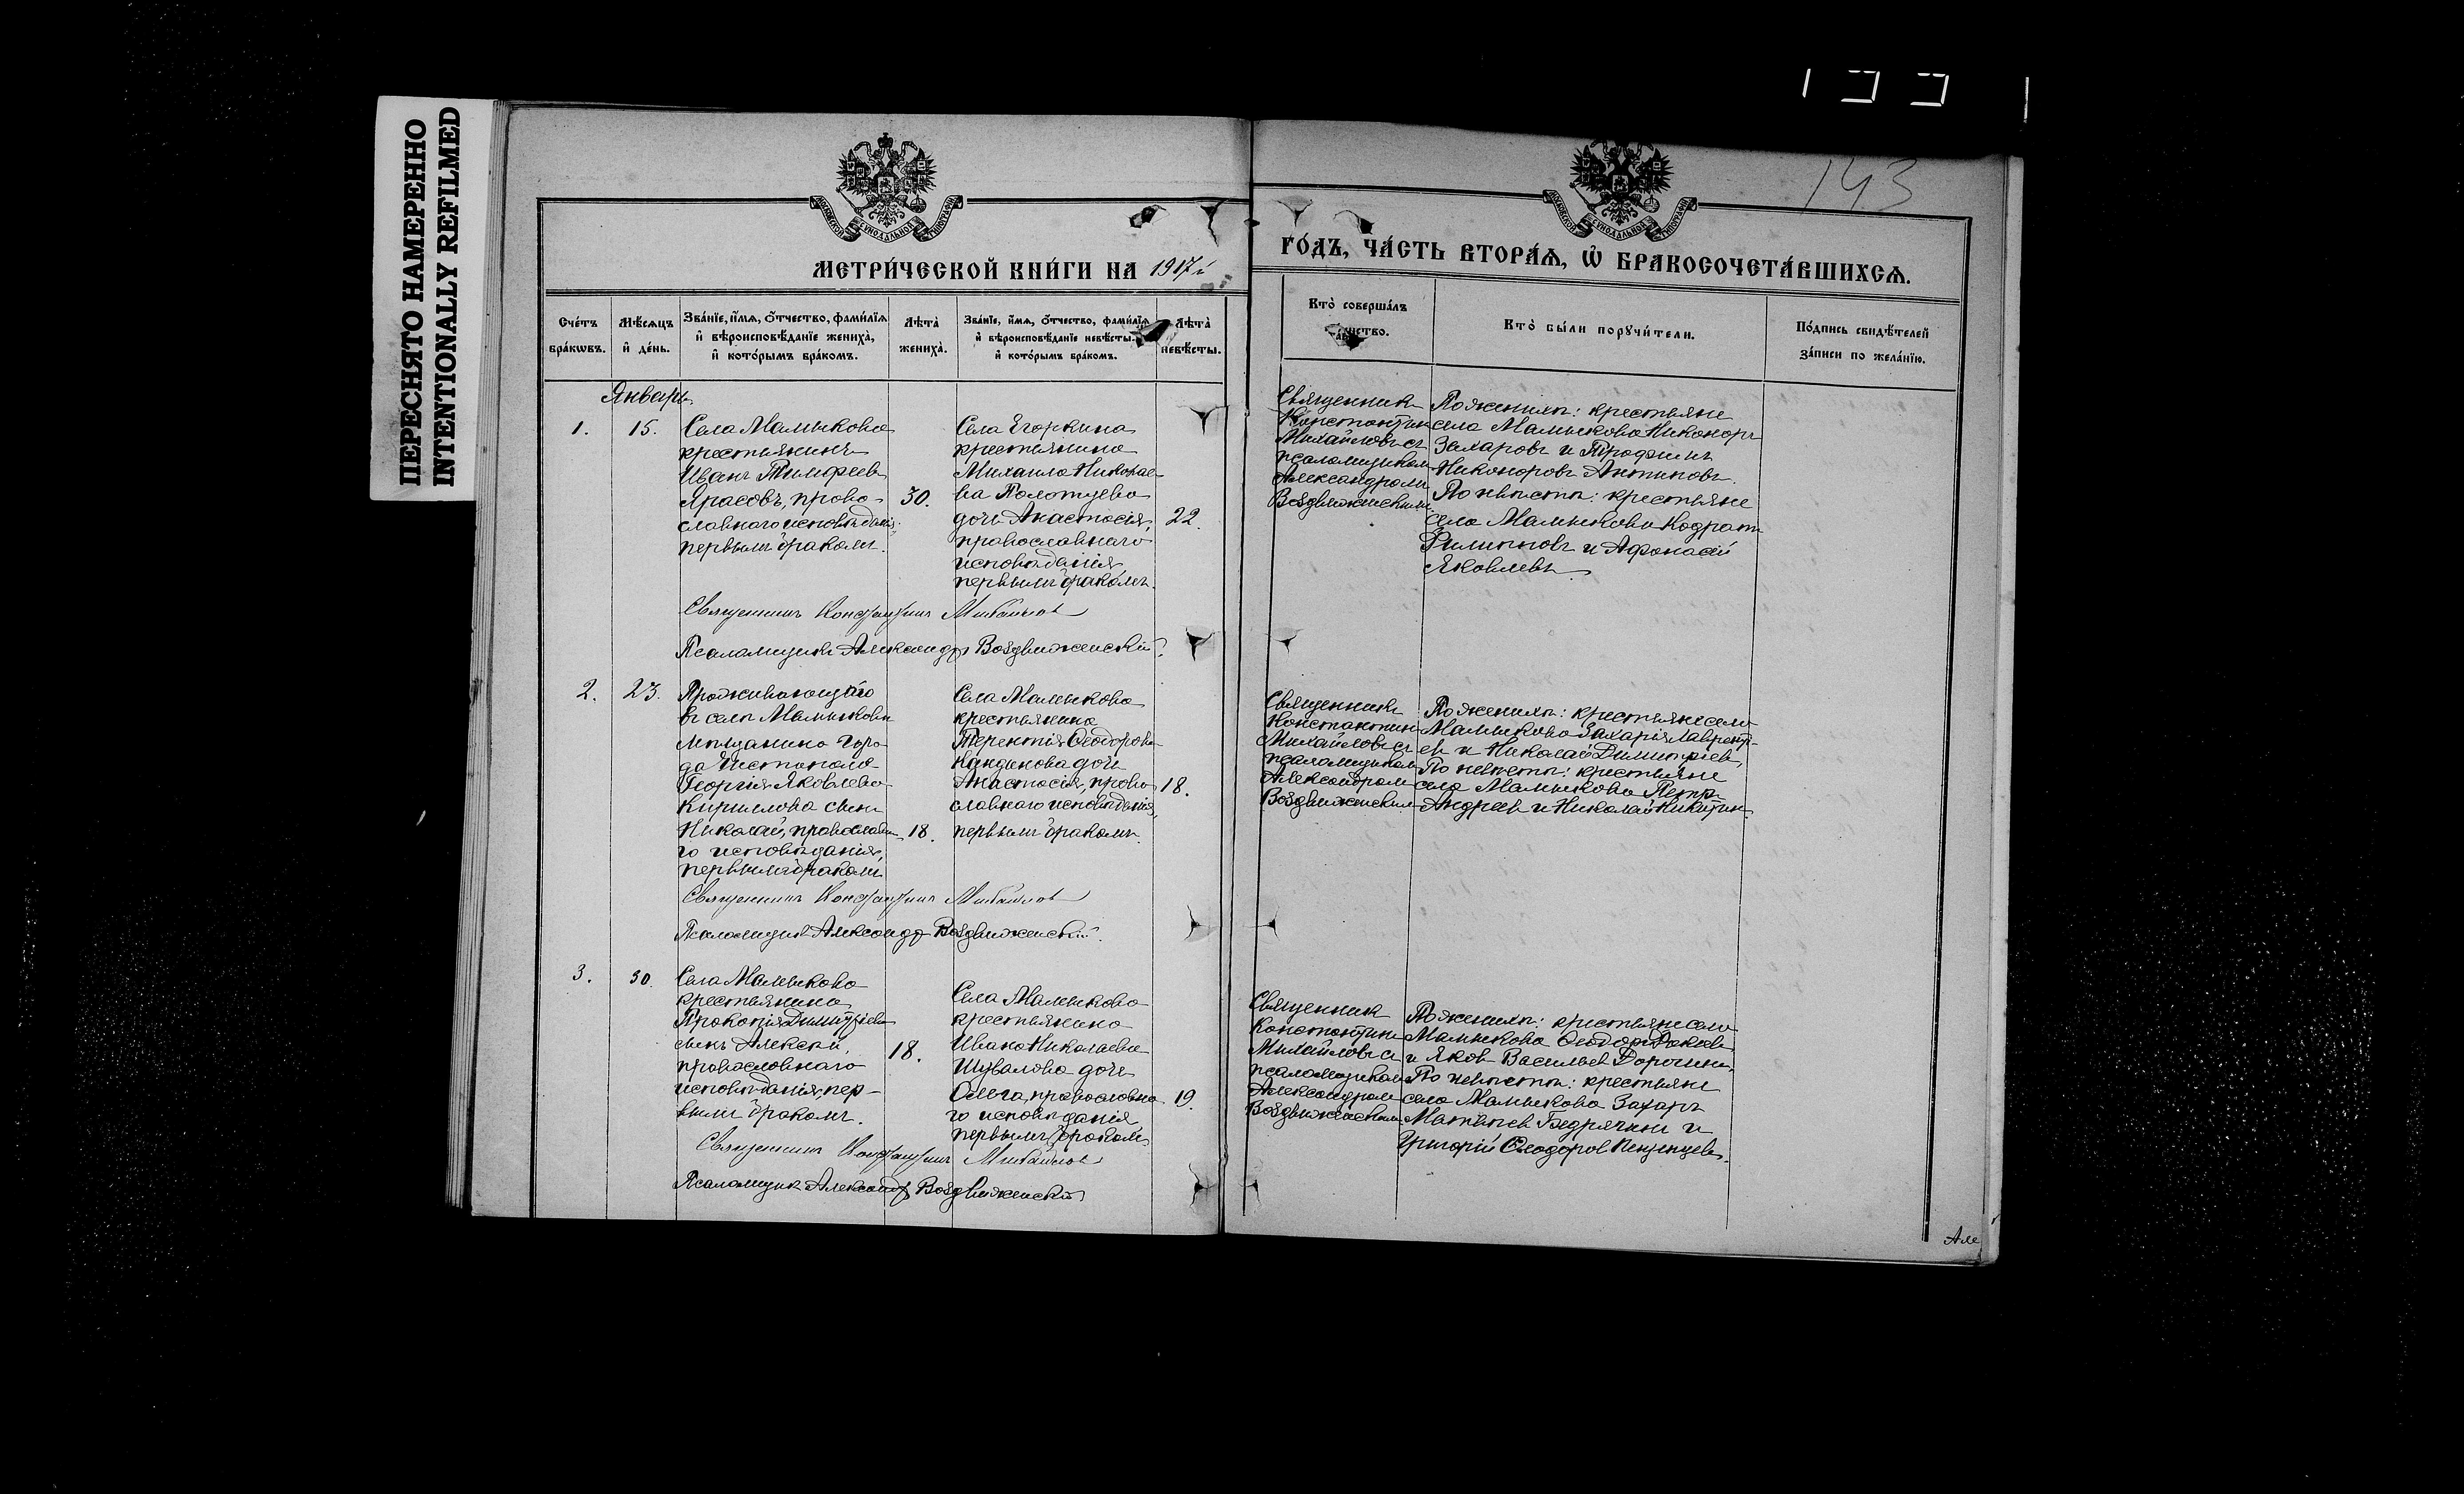 ПЕРЕСНЯТО НАМЕРЕННО
INTENTIONALLY REFILMED
143
МОСКОВСКОЙ СѴНОДАЛЬНОЙ ТИПОГРАФІИ
МОСКОВСКОЙ СѴНОДАЛЬНОЙ ТИПОГРАФІИ
МЕТРИ́ЧЕСКОЙ КНИ́ГИ НА 1917й
ГО́ДЪ, ЧА́СТЬ ВТОРА́Ѧ, Ѽ БРАКОСОЧЕТА́ВШИХСѦ.
Сче́тъ
бра́кωвъ.
Мѣ́сѧцъ
и҆ де́нь.
Зва́нїе, и҆́мѧ, ѻ҆́тчество, фами́лїѧ
и҆ вѣроисповѣ́данїе жениха̀,
и҆ кото́рымъ бра́комъ.
Лѣта̀
жениха̀.
Зва́нїе, и҆́мѧ, ѻ҆́тчество, фами́лїѧ
и҆ вѣроисповѣ́данїе невѣ́сты.
и҆ кото́рымъ бра́комъ.
Лѣта̀
невѣ́сты.
Кто̀ соверша́лъ
Кто̀ бы́ли порꙋчи́тели.
По́дпись свидѣ́телей
за́писи по жела́нїю.
Январь.
1.
15.
Села Малыкова
крестьянинъ
Иванъ Тимофеевъ
Ярасовъ, право-
славнаго исповѣданія,
первымъ бракомъ.
30.
Села Егоркина
крестьянина
Михаила Николае-
ва Полотцева
дочь Анастасія,
православнаго
исповѣданія
первымъ бракомъ.
22.
Священникъ
Константинъ
Михайловъ съ
псаломщикомъ
Александромъ
Воздвиженскимъ.
По женихѣ: крестьяне
села Малыкова Никоноръ
Захаровъ и Трофимъ
Никоноровъ Антиповъ.
По невѣстѣ: крестьяне
села Малыкова Кодратъ
Филипповъ и Афонасій
Яковлевъ.
Священникъ Константинъ Михайловъ
Псаломщикъ Александръ Воздвиженскій.
2.
23.
Проживающаго
въ селѣ Малыковѣ
мѣщанина горо-
да Чистополя
Георгія Яковлева
Кириллова сынъ
Николай, православна-
го исповѣданія,
первымъ бракомъ
18.
Села Малыкова
крестьянина
Терентія Ѳеодорова
Кандикова дочь
Анастасія, право-
славнаго исповѣданія,
первымъ бракомъ.
18.
Священникъ
Константинъ
Михайловъ съ
псаломщикомъ
Александромъ
Воздвиженскимъ
По женихѣ: крестьяне села
Малыкова Захарія Лаврентъ-
евъ и Николай Димитріевъ,
По невѣстѣ: крестьяне
села Малыкова Петръ
Андреевъ и Николай Никитинъ.
Священникъ Константинъ Михайловъ
Псаломщикъ Александръ Воздвиженскій.
3.
30.
Села Малыкова
крестьянина
Прокопія Димитріева
сынъ Алексѣй,
православнаго
исповѣданія, пер-
вымъ бракомъ.
18.
Села Малыкова
крестьянина
Ивана Николаева
Шувалова дочь
Ольга, православна-
го исповѣданія
первымъ бракомъ
19.
Священникъ
Константинъ
Михайловъ съ
псаломщикомъ
Александромъ
Воздвиженскимъ
По женихѣ: крестьяне села
Малыкова Ѳеодоръ
и Яковъ Васильевъ Дорогинъ.
По невѣстѣ: крестьяне
села Малыкова Захаръ
Матвѣевъ и
Григорій Ѳеодоровъ
Священникъ Константинъ Михайловъ
Псаломщикъ Александръ Воздвиженскій
Але